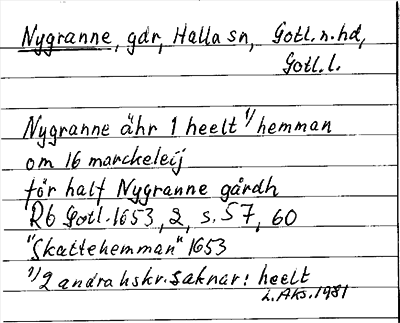 Nygranne, gdr, Halla sn, Gotl. n. hd,
Gotl. l.
Nygranne ähr 1 heelt 1/ hemman
om 16 marckeleij
för half Nygranne gårdh
Rb Gotl. 1653, 2, s. 57, 60
"Skattehemman" 1653
1/ 2 andra hskr. saknar: heelt
L. Aks. 1981